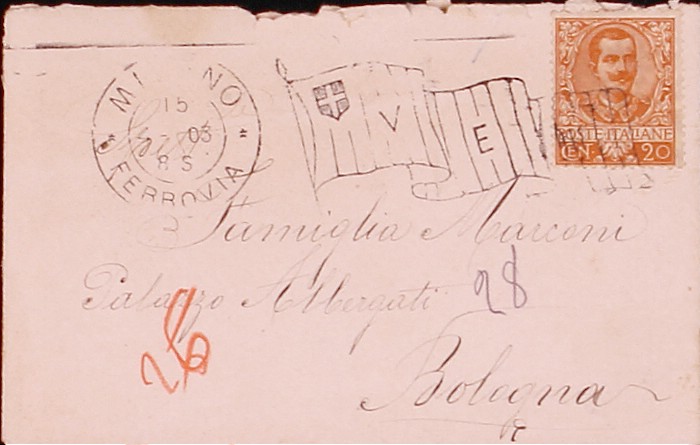 MILANO
15
5 - 03
8 S
FERROVIA
V E
POSTE ITALIANE
CENT. 20
Famiglia Marconi
Palazzo Albergati 28
28
Bologna